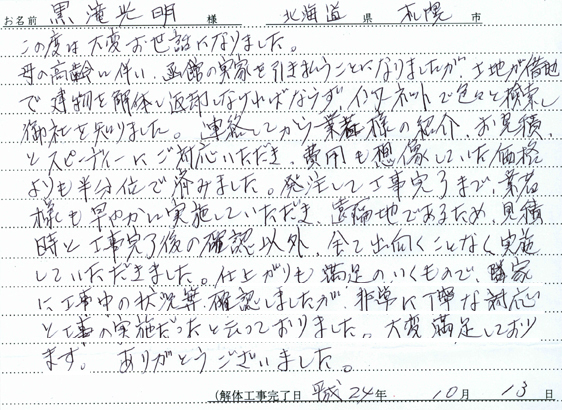 お名前 黒滝光明 様 北海道 県 札幌 市
この度は大変お世話になりました。
母の高齢に伴い、函館の実家を引き払うことになりましたが、土地が借地
で建物を解体し返却しなければならず、インターネットで色々と検索し
御社を知りました。連絡してから業者様の紹介、お見積、
とスピーディーにご対応いただき、費用も想像していた価格
よりも半分位で済みました。発注して工事完了まで、業者
様も早やかに実施していただき、遠隔地であるため、見積
時と工事完了後の確認以外、全て出向くことなく実施
していただきました。仕上がりも満足のいくもので、隣家
に工事中の状況等確認しましたが、非常に丁寧な対応
と工事の実施だったと云っておりました。大変満足しており
ます。ありがとうございました。
(解体工事完了日 平成24年 10月 13日